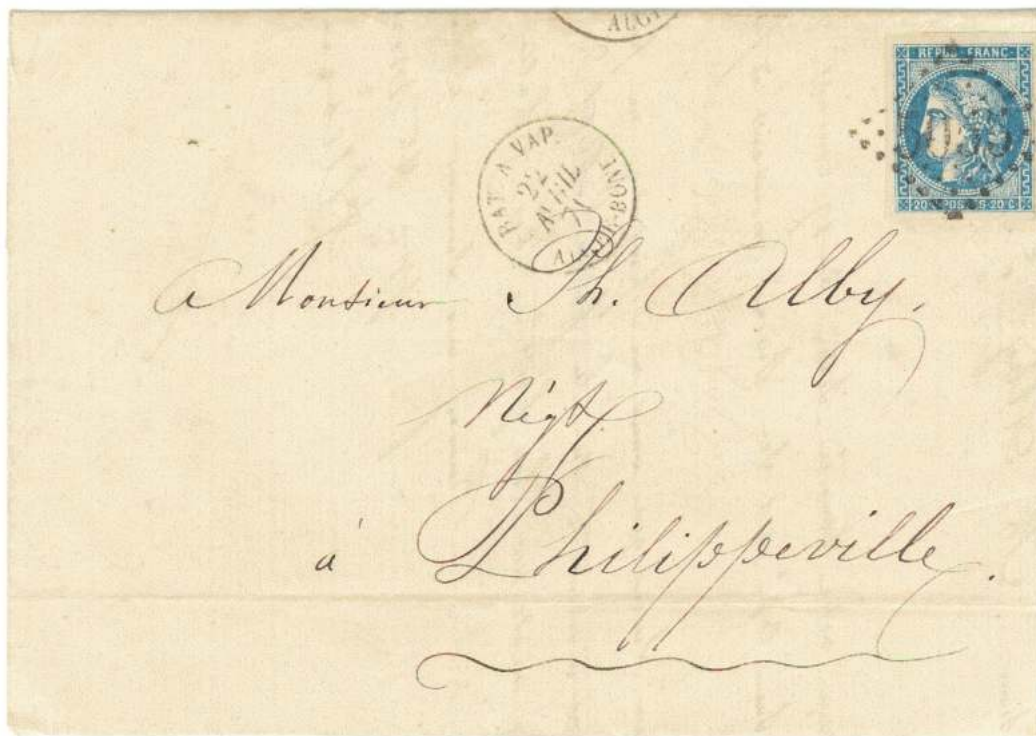 ALG
REPUB · FRANC ·
20 C POSTES 20 C
BAT. A VAP.
22
AVRIL
71
BONE
A Monsieur Th. Alby.
Négt.
à Philippeville.